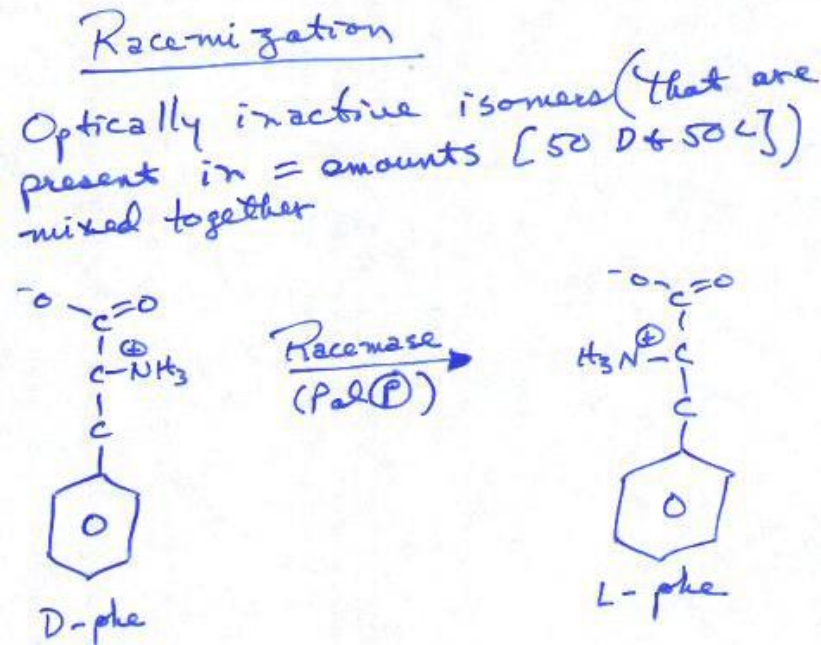 Racemization
Optically inactive isomers (that are
present in = amounts [50 D & 50 L])
mixed together
⁻O C=O
C-NH₃ ⊕
C
D-phe
Racemase
(Pal Ⓟ)
⁻O C=O
H₃N ⊕ -C
C
L-phe